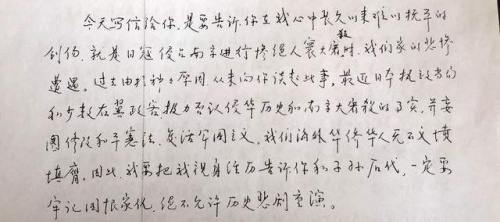 今天写信给你，是要告诉你在我心中长久以来难以抚平的
创伤，就是日寇侵占南京进行惨绝人寰大屠杀时，我们家的悲惨
遭遇。过去由于种种原因，从未向你谈起此事。最近日本执政当局
和少数右翼政客极力否认侵华历史和南京大屠杀的事实，并妄
图修改和平宪法，复活军国主义。我们海外华侨华人无不义愤
填膺。因此，我要把我亲身经历告诉你和子孙后代，一定要
牢记国恨家仇，绝不允许历史悲剧重演。